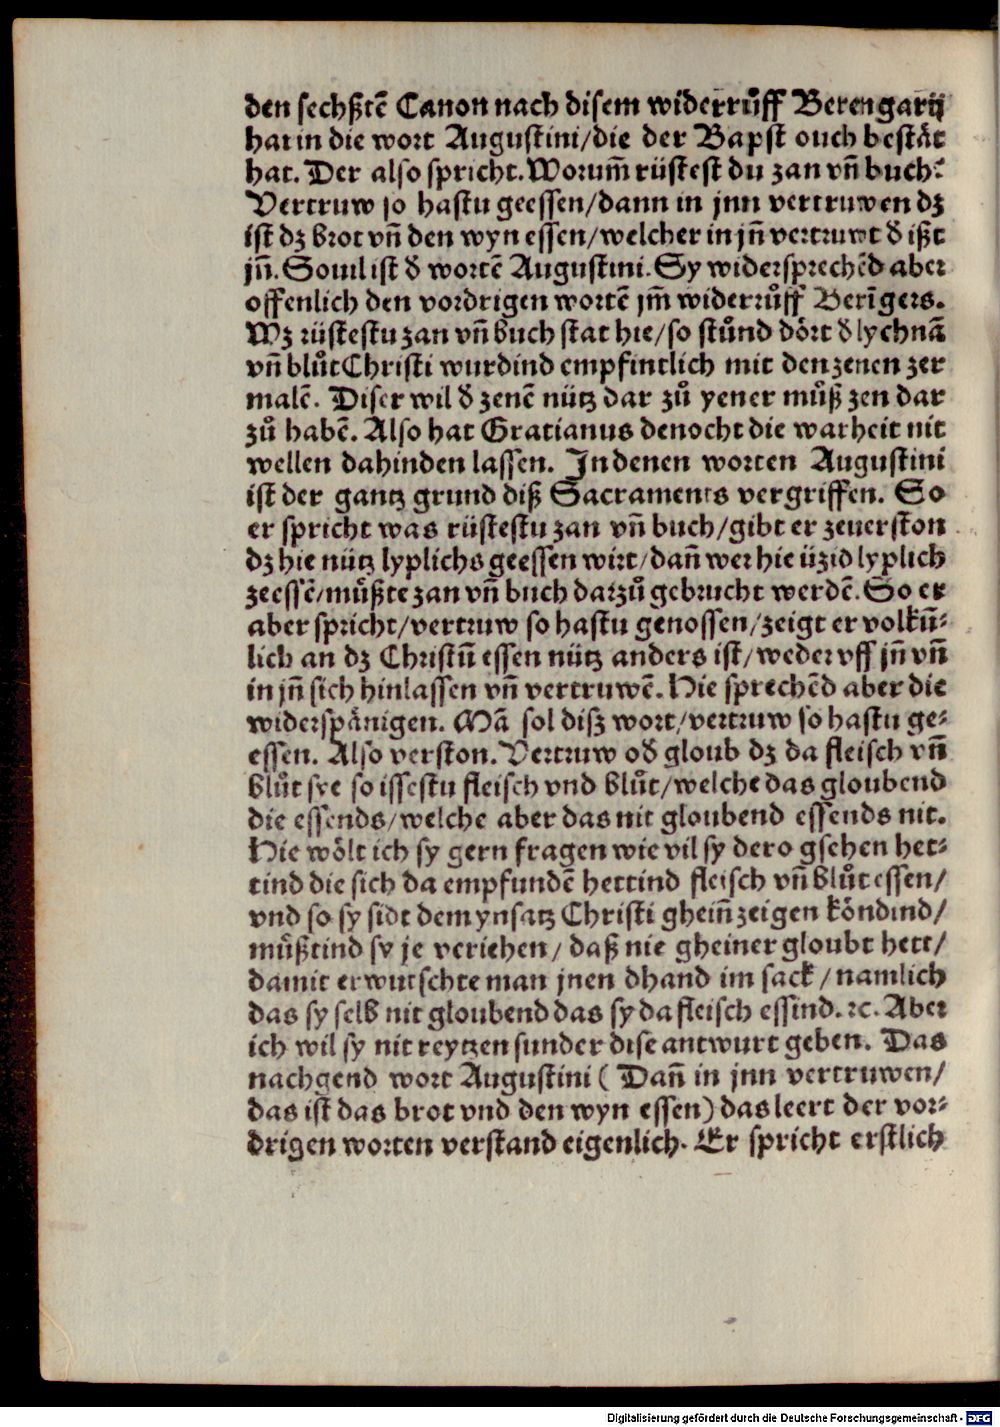 den sechßtē Canon nach disem widerrůff Berengarij
hat in die wort Augustini/die der Bapst ouch bestät
hat. Der also spricht. Worum̄ rüstest du zan vn̄ buch:
Vertruw so hastu geessen/dann in jnn vertruwen dz
ist dz brot vn̄ den wyn essen/welcher in jn̄ vertruwt d̕ ißt
jn̄. Souil ist d̕ wortē Augustini. Sy widersprechēd aber
offenlich den vordrigen wortē jm̄ widerrůff Berīgers.
Wz rüstestu zan vn̄ buch stat hie/so stůnd dört d̕ lychnā
vn̄ blůt Christi wurdind empfintlich mit den zenen zer
malē. Diser wil d̕ zenē nütz dar zů yener můß zen dar
zů habē. Also hat Gratianus denocht die warheit nit
wellen dahinden lassen. In denen worten Augustini
ist der gantz grund diß Sacraments vergriffen. So
er spricht was rüstestu zan vn̄ buch/gibt er zeuerston
dz hie nütz lyplichs geessen wirt/dan̄ wer hie üzid lyplich
zeessē/můßte zan vn̄ buch darzů gebrucht werdē. So er
aber spricht/vertruw so hastu genossen/zeigt er volkū⸗
lich an dz Christū essen nütz anders ist/weder vff jn̄ vn̄
in jn̄ sich hinlassen vn̄ vertruwē. Hie sprechēd aber die
widerspänigen. Mā sol disz wort/vertruw so hastu ge⸗
essen. Also verston. Vertruw od̕ gloub dz da fleisch vn̄
blůt sye so issestu fleisch vnd blůt/welche das gloubend
die essends/welche aber das nit gloubend essends nit.
Hie wölt ich sy gern fragen wie vil sy dero gsehen het⸗
tind die sich da empfundē hettind fleisch vn̄ blůt essen/
vnd so sy sidt dem ynsatz Christi ghein̄ zeigen köndind/
müßtind sy je veriehen/ daß nie gheiner gloubt hett/
damit erwutschte man jnen dhand im sack/namlich
das sy selb nit gloubend das sy da fleisch essind. ⁊c. Aber
ich wil sy nit reytzen sunder dise antwurt geben. Das
nachgend wort Augustini ( Dan̄ in jnn vertruwen/
das ist das brot vnd den wyn essen) das leert der vor⸗
drigen worten verstand eigenlich. Er spricht erstlich
Digitalisierung gefördert durch die Deutsche Forschungsgemeinschaft - DFG